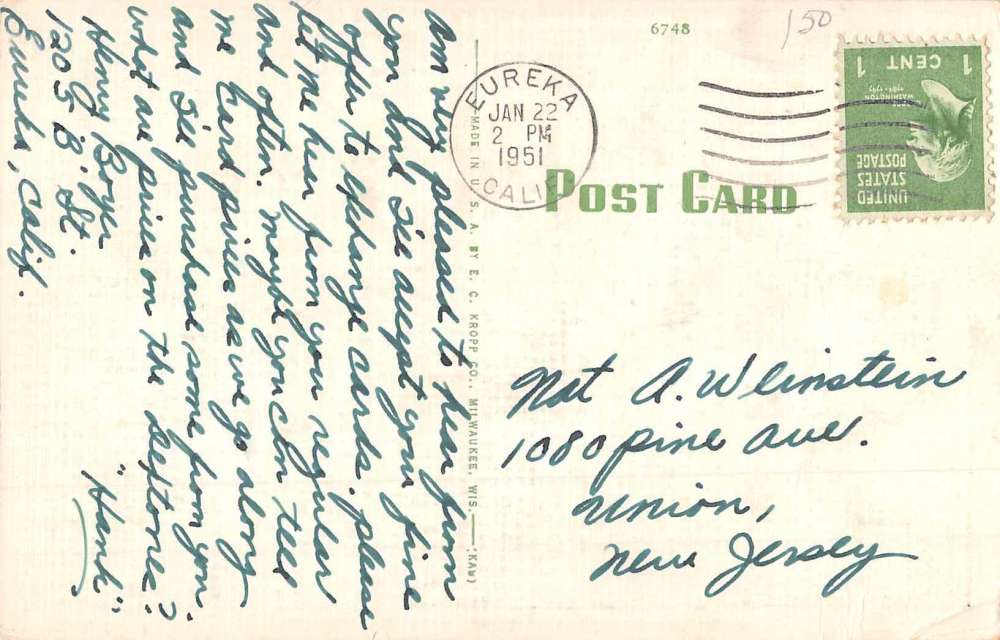 6748
150
EUREKA
JAN 22
2 PM
1951
CALIF
POST CARD
1 CENT 1
WASHINGTON
UNITED
STATES
POSTAGE
Am very pleased to hear from
you and I'll accept your fine
offer to exchange cards. please
let me hear from you regular
and often. maybe you can tell
me card prices as we go along
and I'll purchase some from you.
what are prices on the
"Hank"
Henry Boyer
1205 "B" St.
Eureka, Calif.
MADE IN U. S. A. BY E. C. KROPP CO., MILWAUKEE, WIS. (KAW)
Nat A. Weinstein
1080 pine ave.
union,
new Jersey